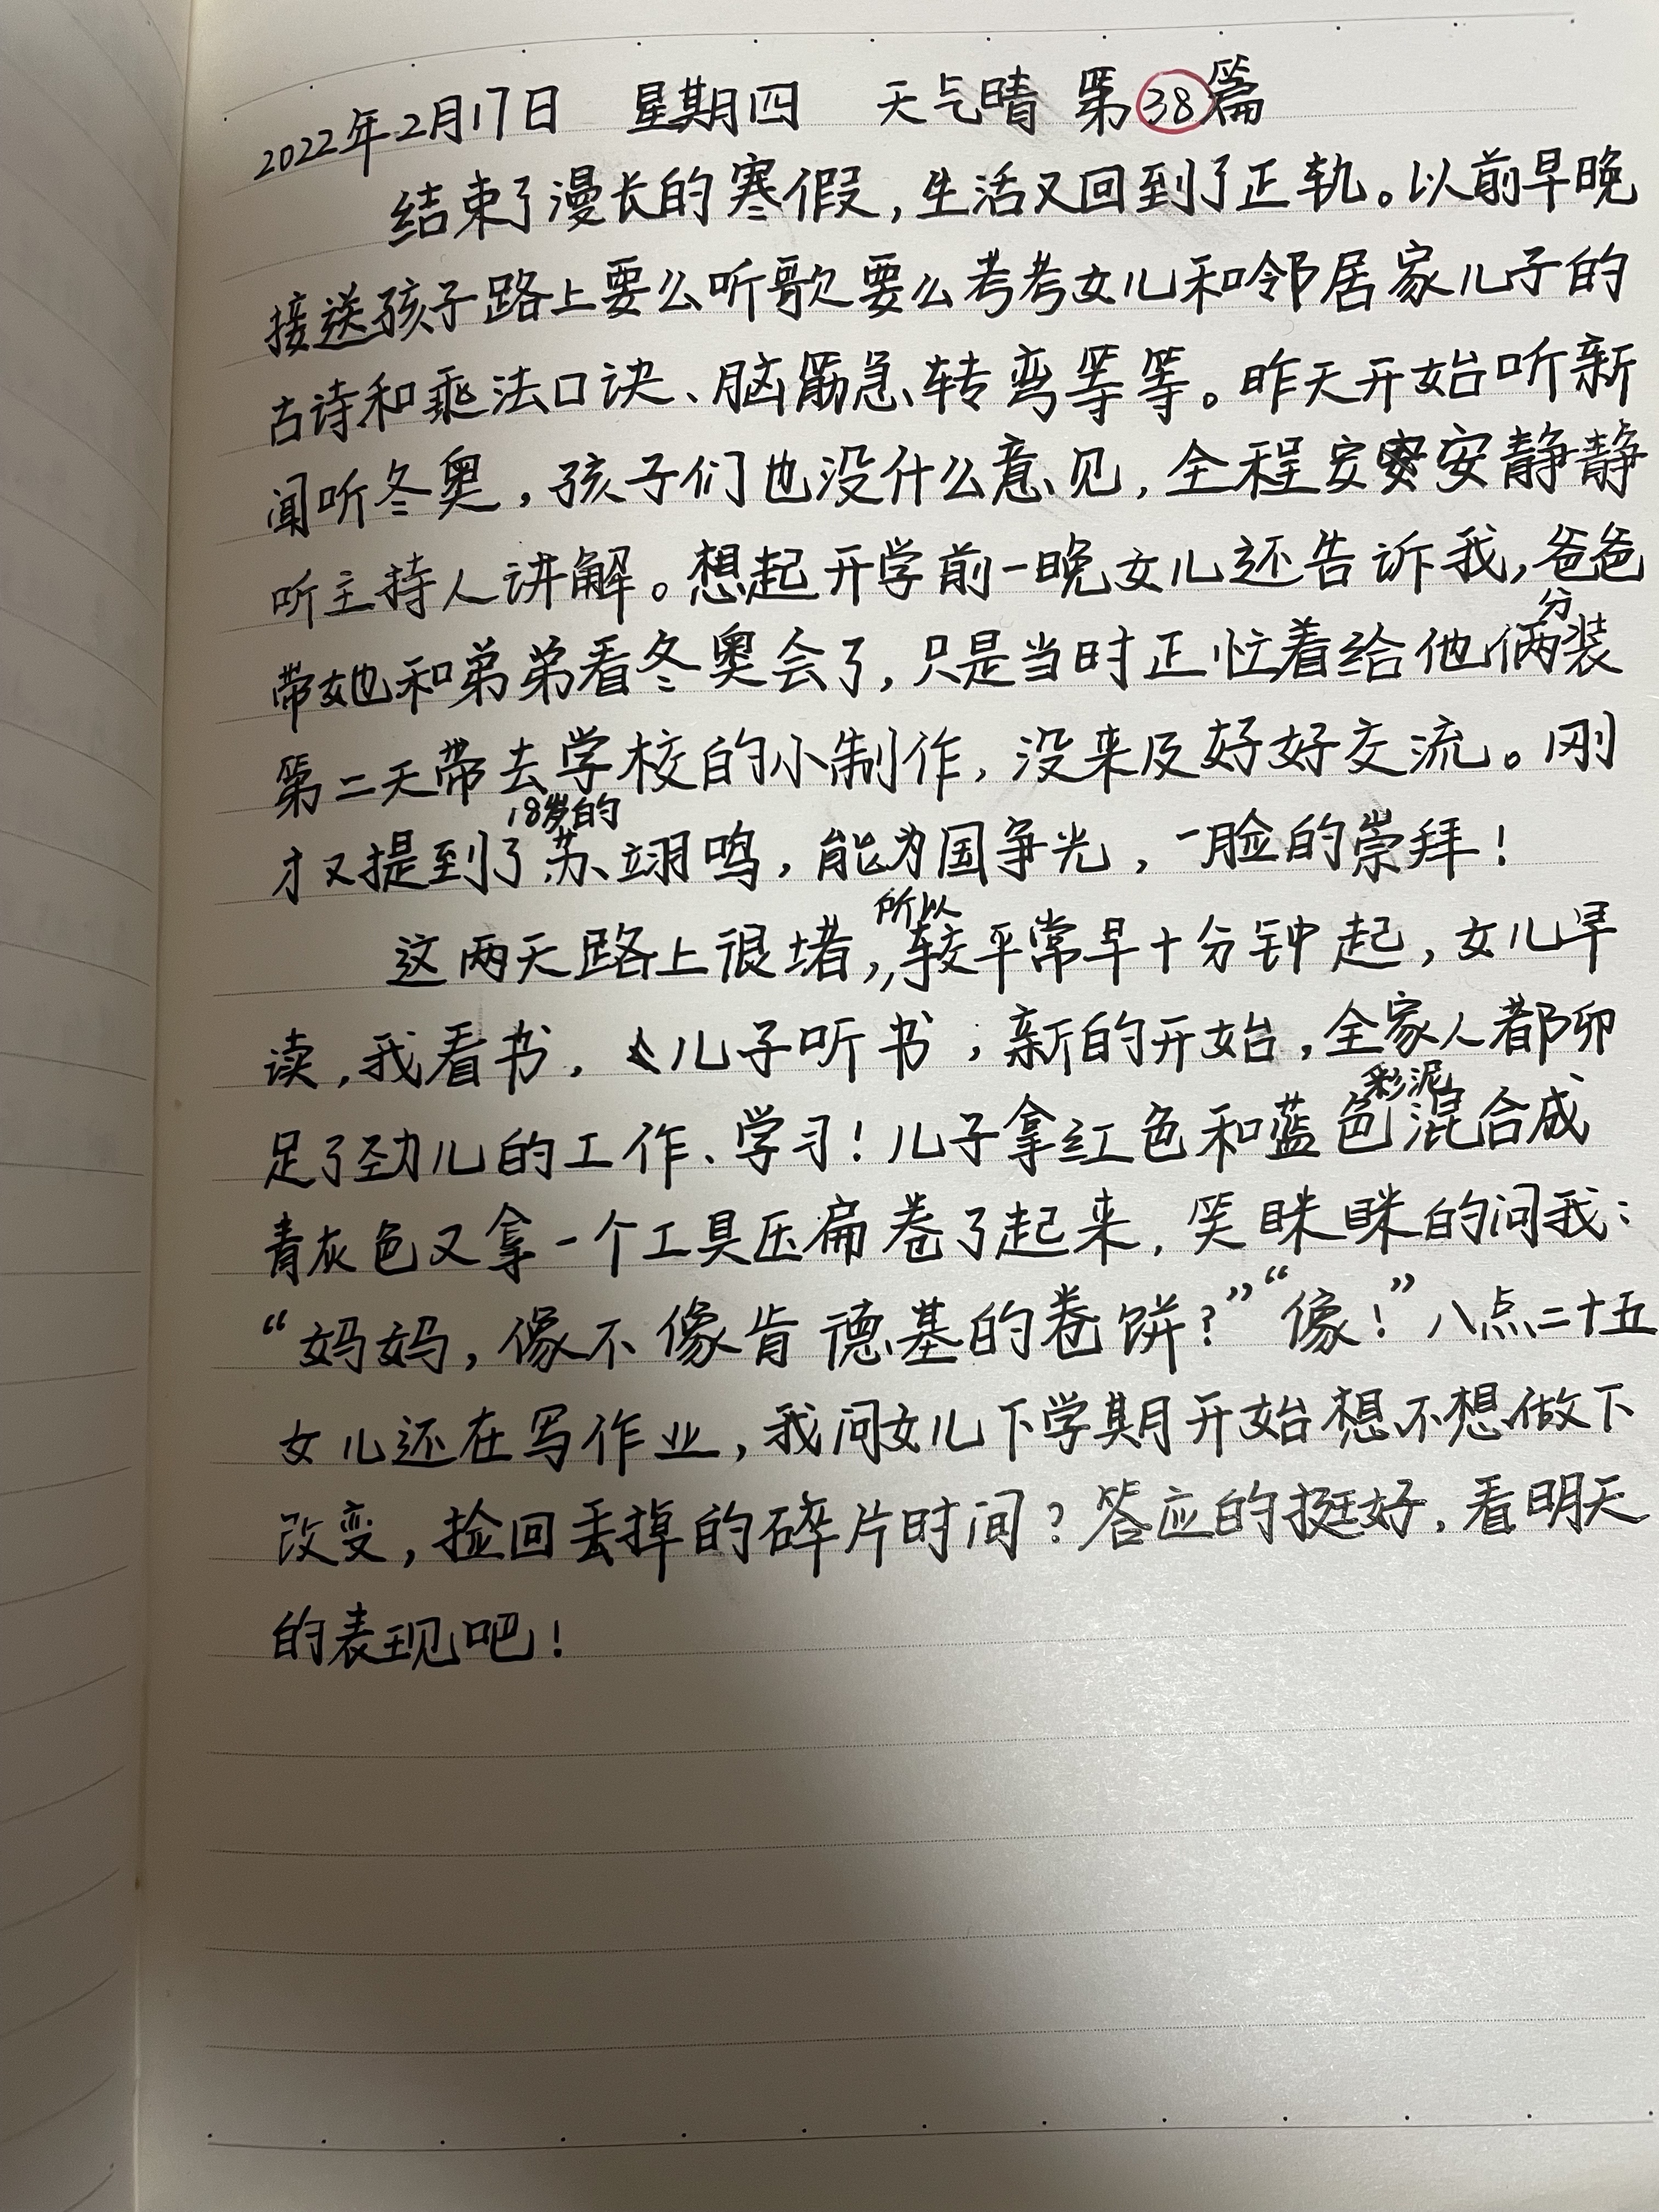 2022年2月17日 星期四 天气晴 第38篇
结束了漫长的寒假,生活又回到了正轨。以前早晚
接送孩子路上要么听歌要么考考女儿和邻居家儿子的
古诗和乘法口诀、脑筋急转弯等等。昨天开始听新
闻听冬奥,孩子们也没什么意见,全程安安静静
听主持人讲解。想起开学前一晚女儿还告诉我,爸爸
带她和弟弟看冬奥会了,只是当时正忙着给他俩分装
第二天带去学校的小制作,没来及好好交流。刚
才又提到了18岁的苏翊鸣,能为国争光,一脸的崇拜!
这两天路上很堵,所以较平常早十分钟起,女儿早
读,我看书,儿子听书,新的开始,全家人都卯
足了劲儿的工作、学习!儿子拿红色和蓝色彩泥混合成
青灰色又拿一个工具压扁卷了起来,笑眯眯的问我:
“妈妈,像不像肯德基的卷饼?”“像!”八点二十五
女儿还在写作业,我问女儿下学期开始想不想做下
改变,捡回丢掉的碎片时间?答应的挺好,看明天
的表现吧!